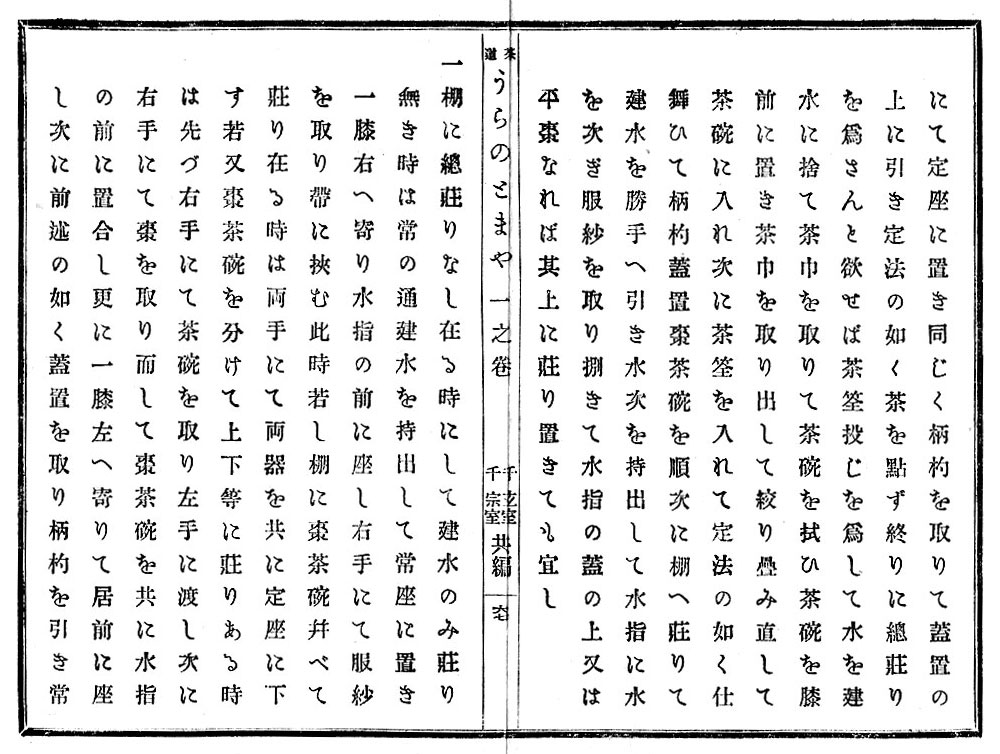 にて定座に置き同じく柄杓を取りて蓋置の
上に引き定法の如く茶を點ず終りに總莊り
を爲さんと欲せば茶筌投じを爲して水を建
水に捨て茶巾を取りて茶碗を拭ひ茶碗を膝
前に置き茶巾を取り出して絞り疊み直して
茶碗に入れ次に茶筌を入れて定法の如く仕
舞ひて柄杓蓋置棗茶碗を順次に棚へ莊りて
建水を勝手へ引き水次を持出して水指に水
を次ぎ服紗を取り捌きて水指の蓋の上又は
平棗なれば其上に莊り置きても宜し
茶道 うらのとまや一之卷 千玄室 千宗室 共編
一棚に總莊りなし在る時にして建水のみ莊り
無き時は常の通建水を持出して常座に置き
一膝右へ寄り水指の前に座し右手にて服紗
を取り帶に挾む此時若し棚に棗茶碗幷べて
莊り在る時は両手にて両器を共に定座に下
す若又棗茶碗を分けて上下等に莊りある時
は先づ右手にて茶碗を取り左手に渡し次に
右手にて棗を取り而して棗茶碗を共に水指
の前に置合し更に一膝左へ寄りて居前に座
し次に前述の如く蓋置を取り柄杓を引き常